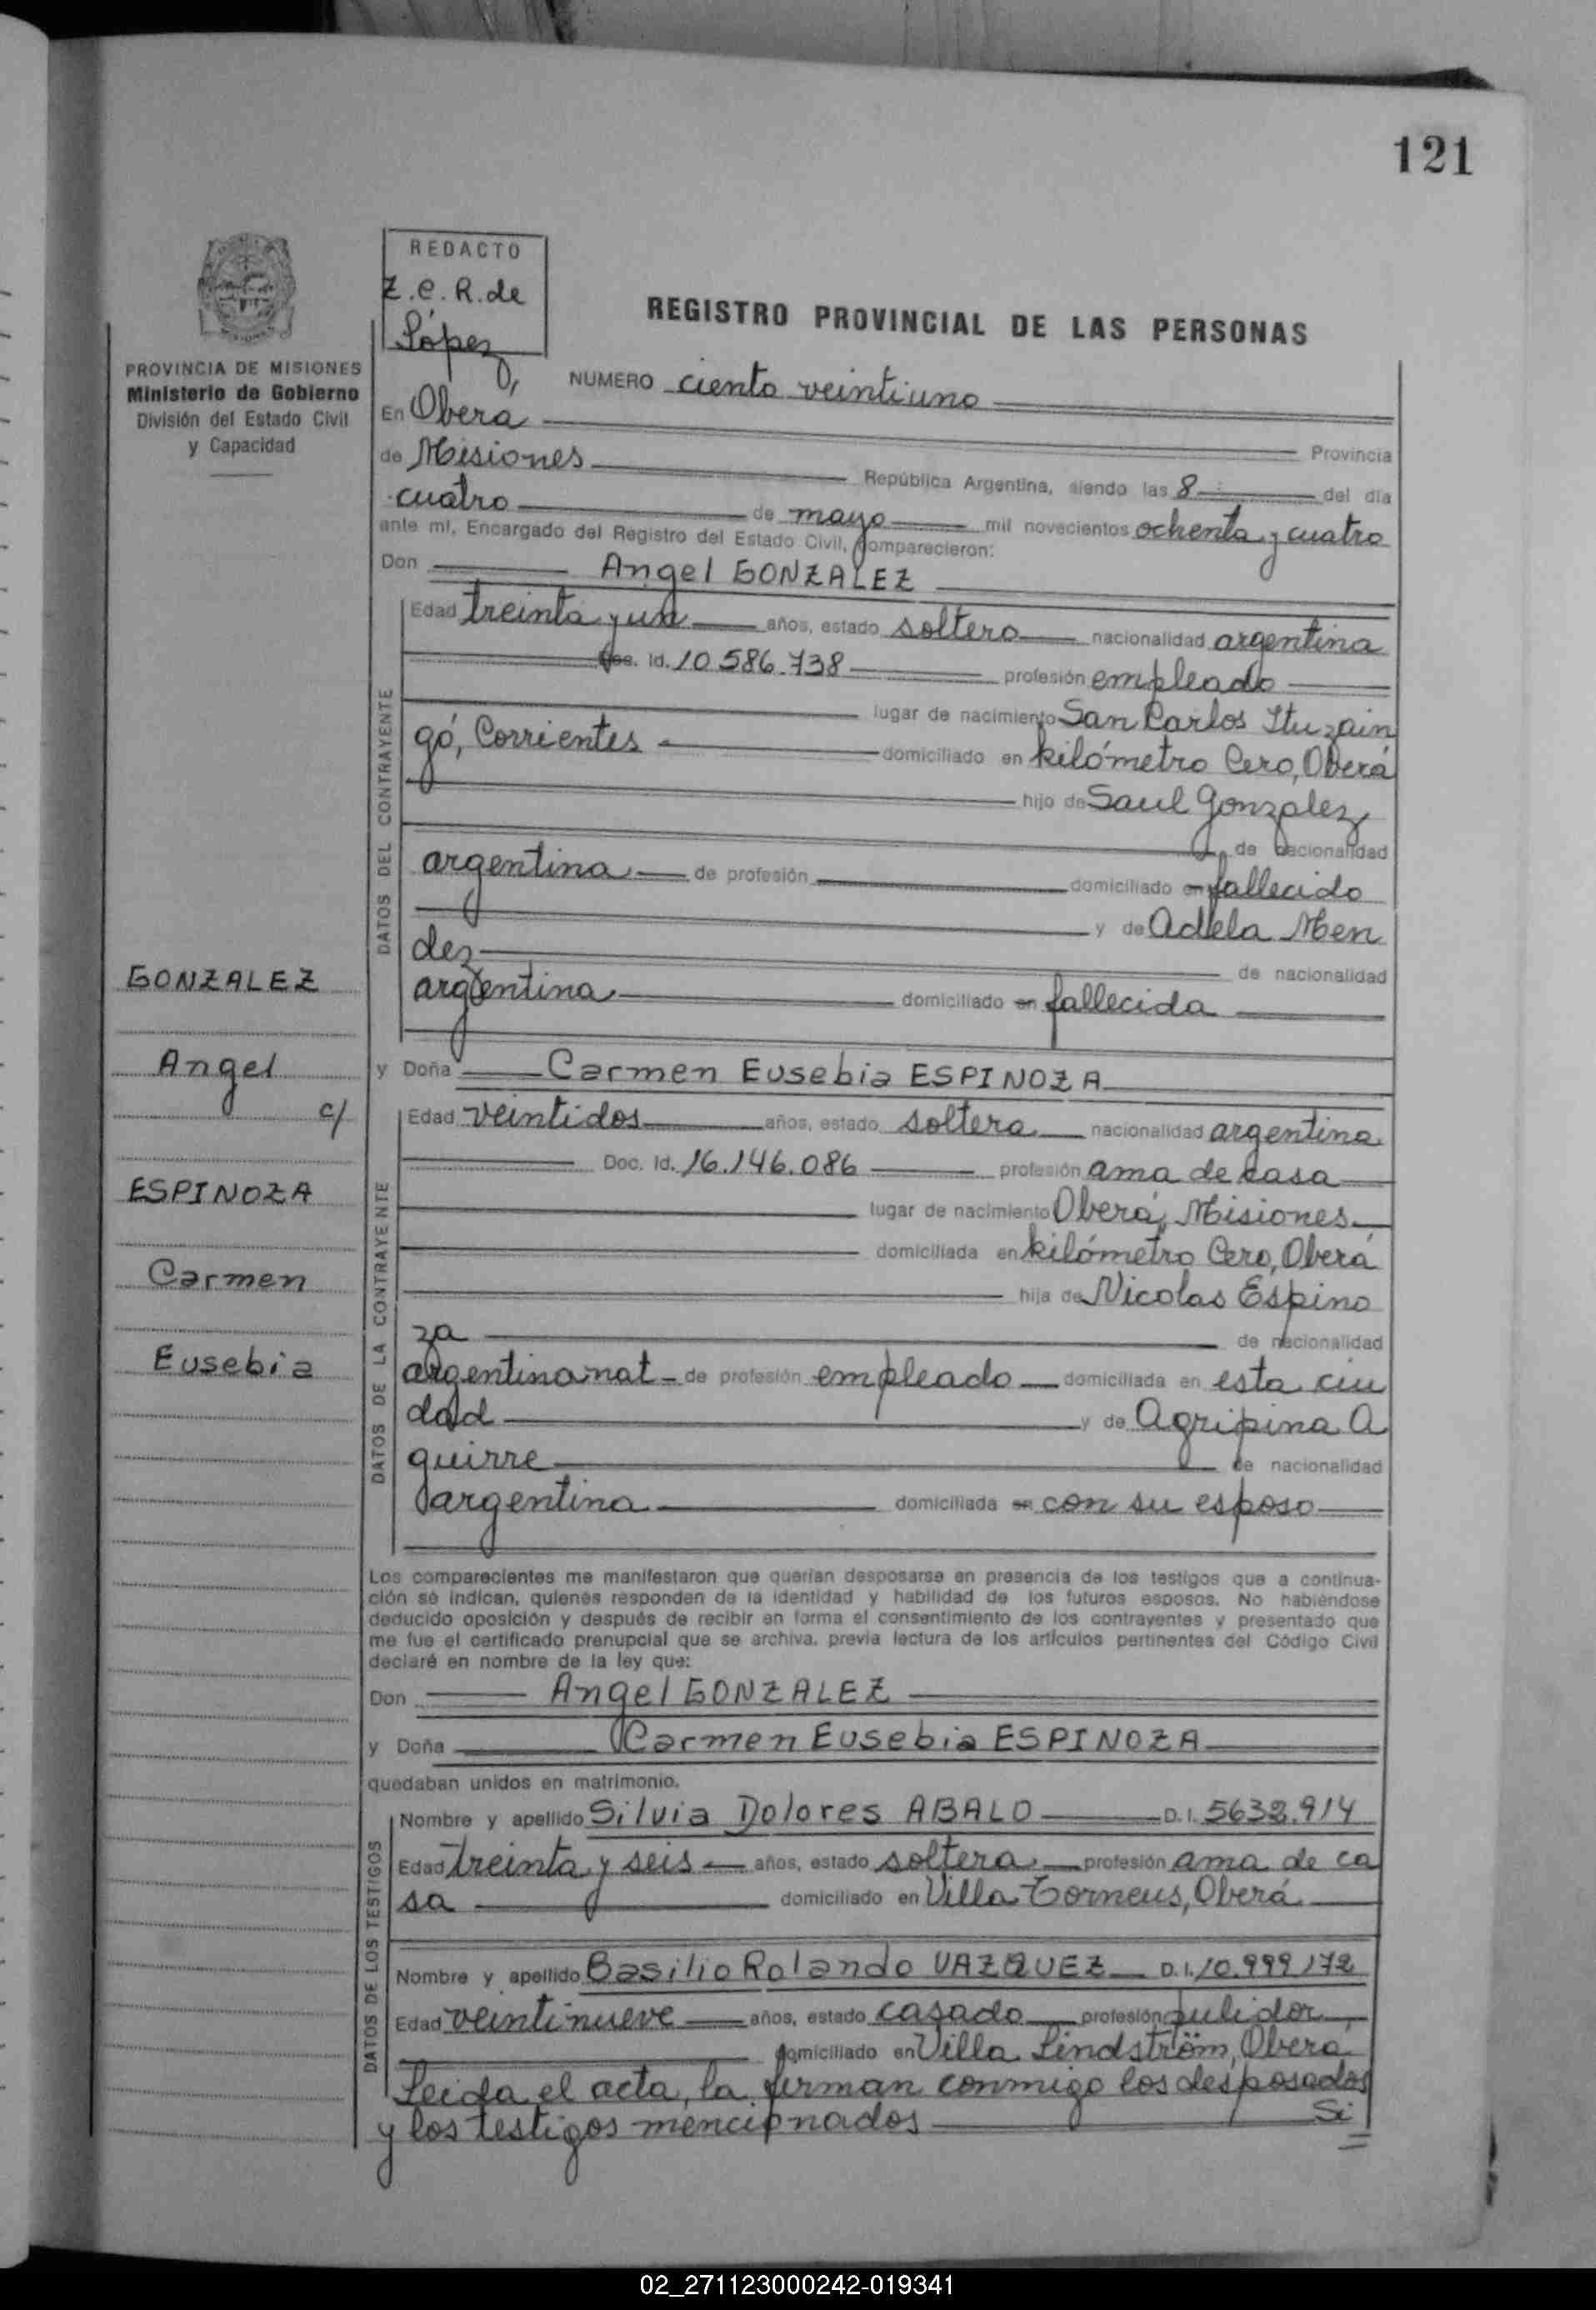 121
REDACTO
Z.C.R. de
López
REGISTRO PROVINCIAL DE LAS PERSONAS
PROVINCIA DE MISIONES
Ministerio de Gobierno
División del Estado Civil
y Capacidad
NUMERO ciento veintiuno
En Oberá
Provincia
de Misiones República Argentina, siendo las 8 del día
cuatro de mayo mil novecientos ochenta y cuatro
ante mí, Encargado del Registro del Estado Civil, comparecieron:
Don Angel GONZALEZ
DATOS DEL CONTRAYENTE
Edad treinta y un años, estado soltero nacionalidad argentina
Doc. Id. 10.586.738 profesión empleado
lugar de nacimiento San Carlos Ituzain
gó, Corrientes domiciliado en kilómetro Cero, Oberá
hijo de Saul Gonzalez
de nacionalidad
argentina de profesión domiciliado en fallecido
y de Adela Men
dez de nacionalidad
argentina domiciliado en fallecida
y Doña Carmen Eusebia ESPINOZA
DATOS DE LA CONTRAYENTE
Edad veintidos años, estado soltera nacionalidad argentina
Doc. Id. 16.146.086 profesión ama de casa
lugar de nacimiento Oberá, Misiones
domiciliada en kilómetro Cero, Oberá
hija de Nicolas Espino
za de nacionalidad
argentina nat de profesión empleado domiciliada en esta ciu
dad y de Agripina A
guirre de nacionalidad
argentina domiciliada en con su esposo
GONZALEZ
Angel
c/
ESPINOZA
Carmen
Eusebia
Los comparecientes me manifestaron que querían desposarse en presencia de los testigos que a continua-
ción se indican, quienes responden de la identidad y habilidad de los futuros esposos. No habiéndose
deducido oposición y después de recibir en forma el consentimiento de los contrayentes y presentado que
me fue el certificado prenupcial que se archiva, previa lectura de los artículos pertinentes del Código Civil
declaré en nombre de la ley que:
Don Angel GONZALEZ
y Doña Carmen Eusebia ESPINOZA
quedaban unidos en matrimonio.
DATOS DE LOS TESTIGOS
Nombre y apellido Silvia Dolores ABALO D.I. 5632.914
Edad treinta y seis años, estado soltera profesión ama de ca
sa domiciliado en Villa Torneus, Oberá
Nombre y apellido Basilio Rolando VAZQUEZ D.I. 10.999.172
Edad veintinueve años, estado casado profesión pulidor
domiciliado en Villa Lindström, Oberá
Leida el acta, la firman conmigo los desposados
y los testigos mencionados Si
02_271123000242-019341